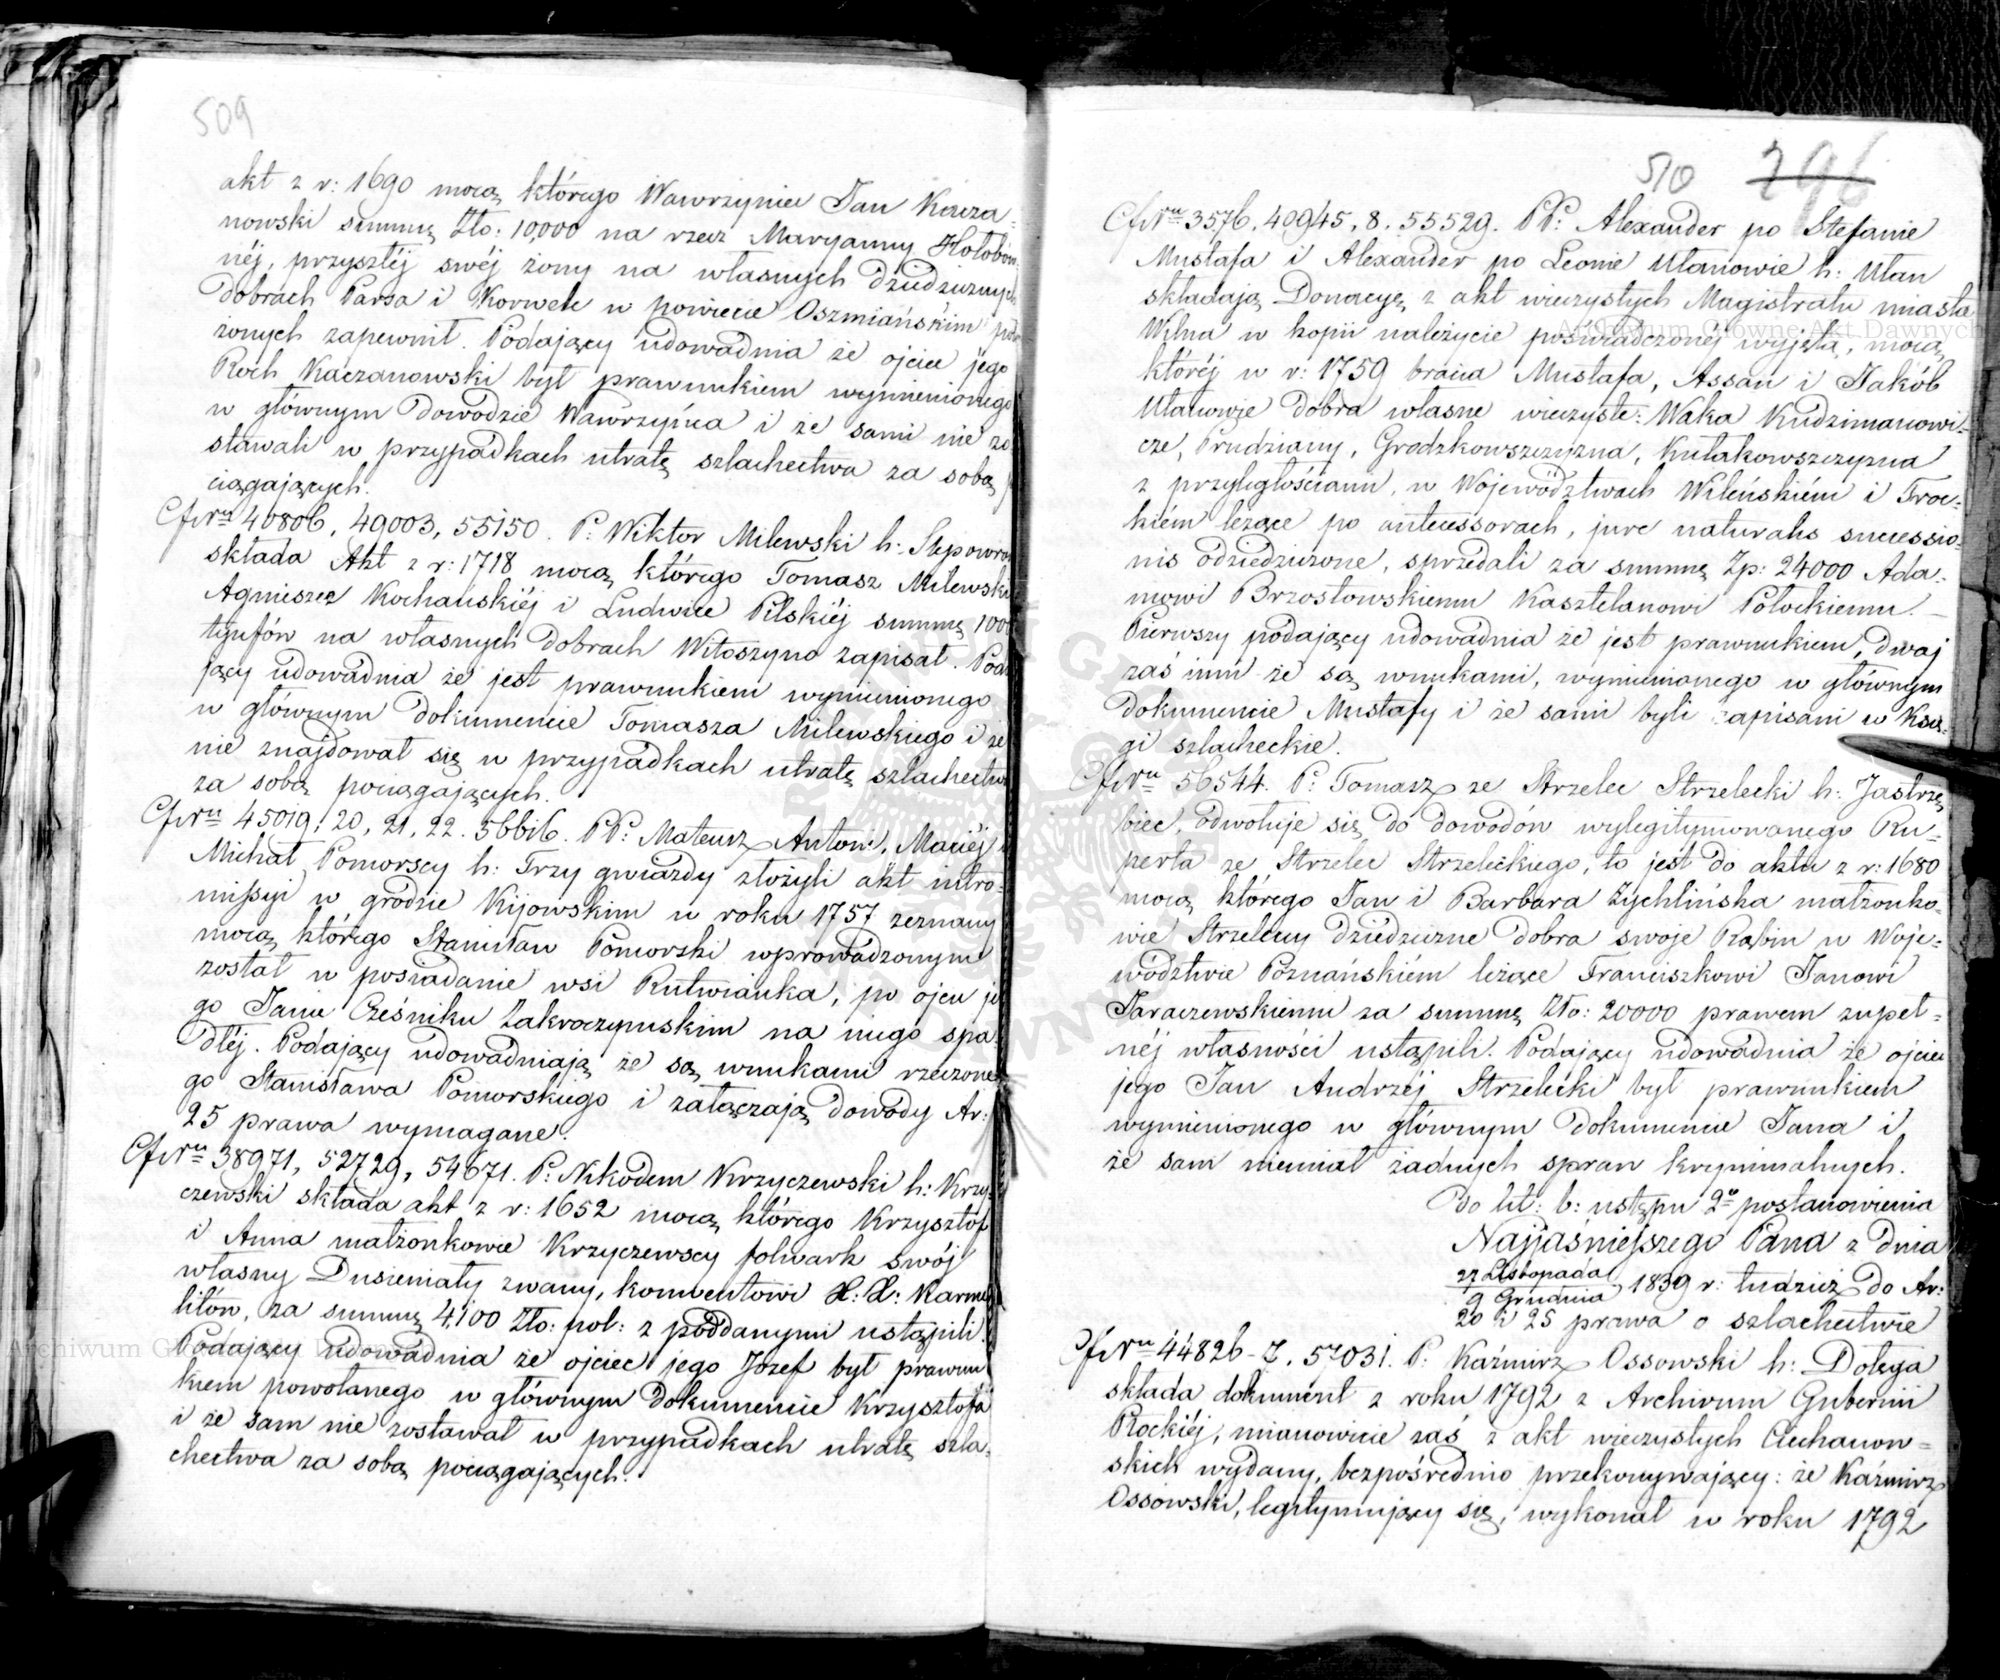 509
akt z r: 1690 mocą którego Wawrzyniec Jan Kacza-
nowski summę Zło: 10,000 na rzecz Maryanny Hołobów
néj, przyszłéj swéj żony na własnych dziedzicznych
dobrach Parsa i Korwele w powiecie Oszmiańskim poło
żonych zapewnił. Podający udowadnia że ojciec jego
Roch Kaczanowski był prawnukiem wymienionego
w głównym dowodzie Wawrzyńca i że sami nie zo-
stawali w przypadkach utratę szlachectwa za sobą
ciągających.
Cfr Nru 40806, 49003, 55150. P: Wiktor Milewski h: Ślepowron
składa Akt z r: 1718 mocą którego Tomasz Milewski
Agnieszce Kochańskiéj i Ludwice Pilskiéj summę 1000
tynfów na własnych dobrach Witoszyno zapisał. Poda
jący udowadnia że jest prawnukiem wymienionego
w głównym dokumencie Tomasza Milewskiego i że
nie znajdował się w przypadkach utratę szlachectwa
za sobą pociągających.
Cfr Nru 45019, 20, 21, 22. 56616. PP: Mateusz, Antoni, Maciéj i
Michał Pomorscy h: Trzy gwiazdy złożyli akt intro-
missyi w grodzie Kijowskim w roku 1757 zeznany
mocą którego Stanisław Pomorski wprowadzonym
został w posiadanie wsi Rutwianka, po ojcu je
go Janie Cześniku Zakroczymskim na niego spa
dłéj. Podający udowadniają że są wnukami rzeczone
go Stanisława Pomorskiego i załączają dowody Ar:
25 prawa wymagane.
Cfr Nru 38971, 52729, 54671. P: Nikodem Krzyczewski h: Krzy-
czewski składa akt z r: 1652 mocą którego Krzysztof
i Anna małżonkowie Krzyczewscy folwark swój
własny Dusieniaty zwany, konwentowi X: X: Karme
litów, za summę 4,100 Zło: pol: z poddanymi ustąpili.
Podający udowadnia że ojciec jego Józef był prawnu
kiem powołanego w głównym dokumencie Krzysztofa
i że sam nie zostawał w przypadkach utratę szla-
chectwa za sobą pociągających.
510 296
Cfr Nru 3576, 40945, 8. 55529. PP: Alexander po Stefanie
Mustafa i Alexander po Leonie Ułanowie h: Ułan
składają Donacyę z akt wieczystych Magistratu miasta
Wilna w kopii należycie poświadczonéj wyjętą, mocą
któréj w r: 1759 bracia Mustafa, Assan i Jakób
Ułanowie dobra własne wieczyste: Waka Kudzimanowi-
cze, Prudziany, Grodzkowszczyzna, Kułakowszczyzna
z przyległościami, w Województwach Wileńskiém i Troc-
kiém leżące po antecessorach, jure naturalis successio-
nis odziedziczone, sprzedali za summę Zp: 24000 Ada-
mowi Brzostowskiemu Kasztelanowi Połockiemu. –
Pierwszy podający udowadnia że jest prawnukiem, dwaj
zaś inni że są wnukami, wymienionego w głównym
dokumencie Mustafy i że sami byli zapisani w Księ-
gi szlacheckie.
Cfr Nru 56544. P: Tomasz ze Strzelec Strzelecki h: Jastrzę
biec, odwołuje się do dowodów wylegitymowanego Ru-
perta ze Strzelec Strzeleckiego, to jest do aktu z r: 1680
mocą którego Jan i Barbara Zychlińska małżonko-
wie Strzelccy dziedziczne dobra swoje Rąbin w Woje-
wództwie Poznańskiém leżące Franciszkowi Janowi
Jaraczewskiemu za summę Zło: 20000 prawem zupeł-
néj własności ustąpili. Podający udowadnia że ojciec
jego Jan Andrzéj Strzelecki był prawnukiem
wymienionego w głównym dokumencie Jana i
że sam niemiał żadnych spraw kryminalnych.
Do lit: b: ustępu 2o postanowienia
Najjaśniejszego Pana z dnia
27 Listopada/9 Grudnia 1839 r: tudzież do Ar:
20 i 25 prawa o szlachectwie
Cfr Nru 44826-7, 57031. P: Kaźmirz Ossowski h: Dołęga
składa dokument z roku 1792 z Archiwum Gubernii
Płockiéj, mianowicie zaś z akt wieczystych Ciechanow-
skich wydany, bezpośrednio przekonywający: że Kaźmirz
Ossowski, legitymujący się, wykonał w roku 1792
Archiwum Główne Akt Dawnych